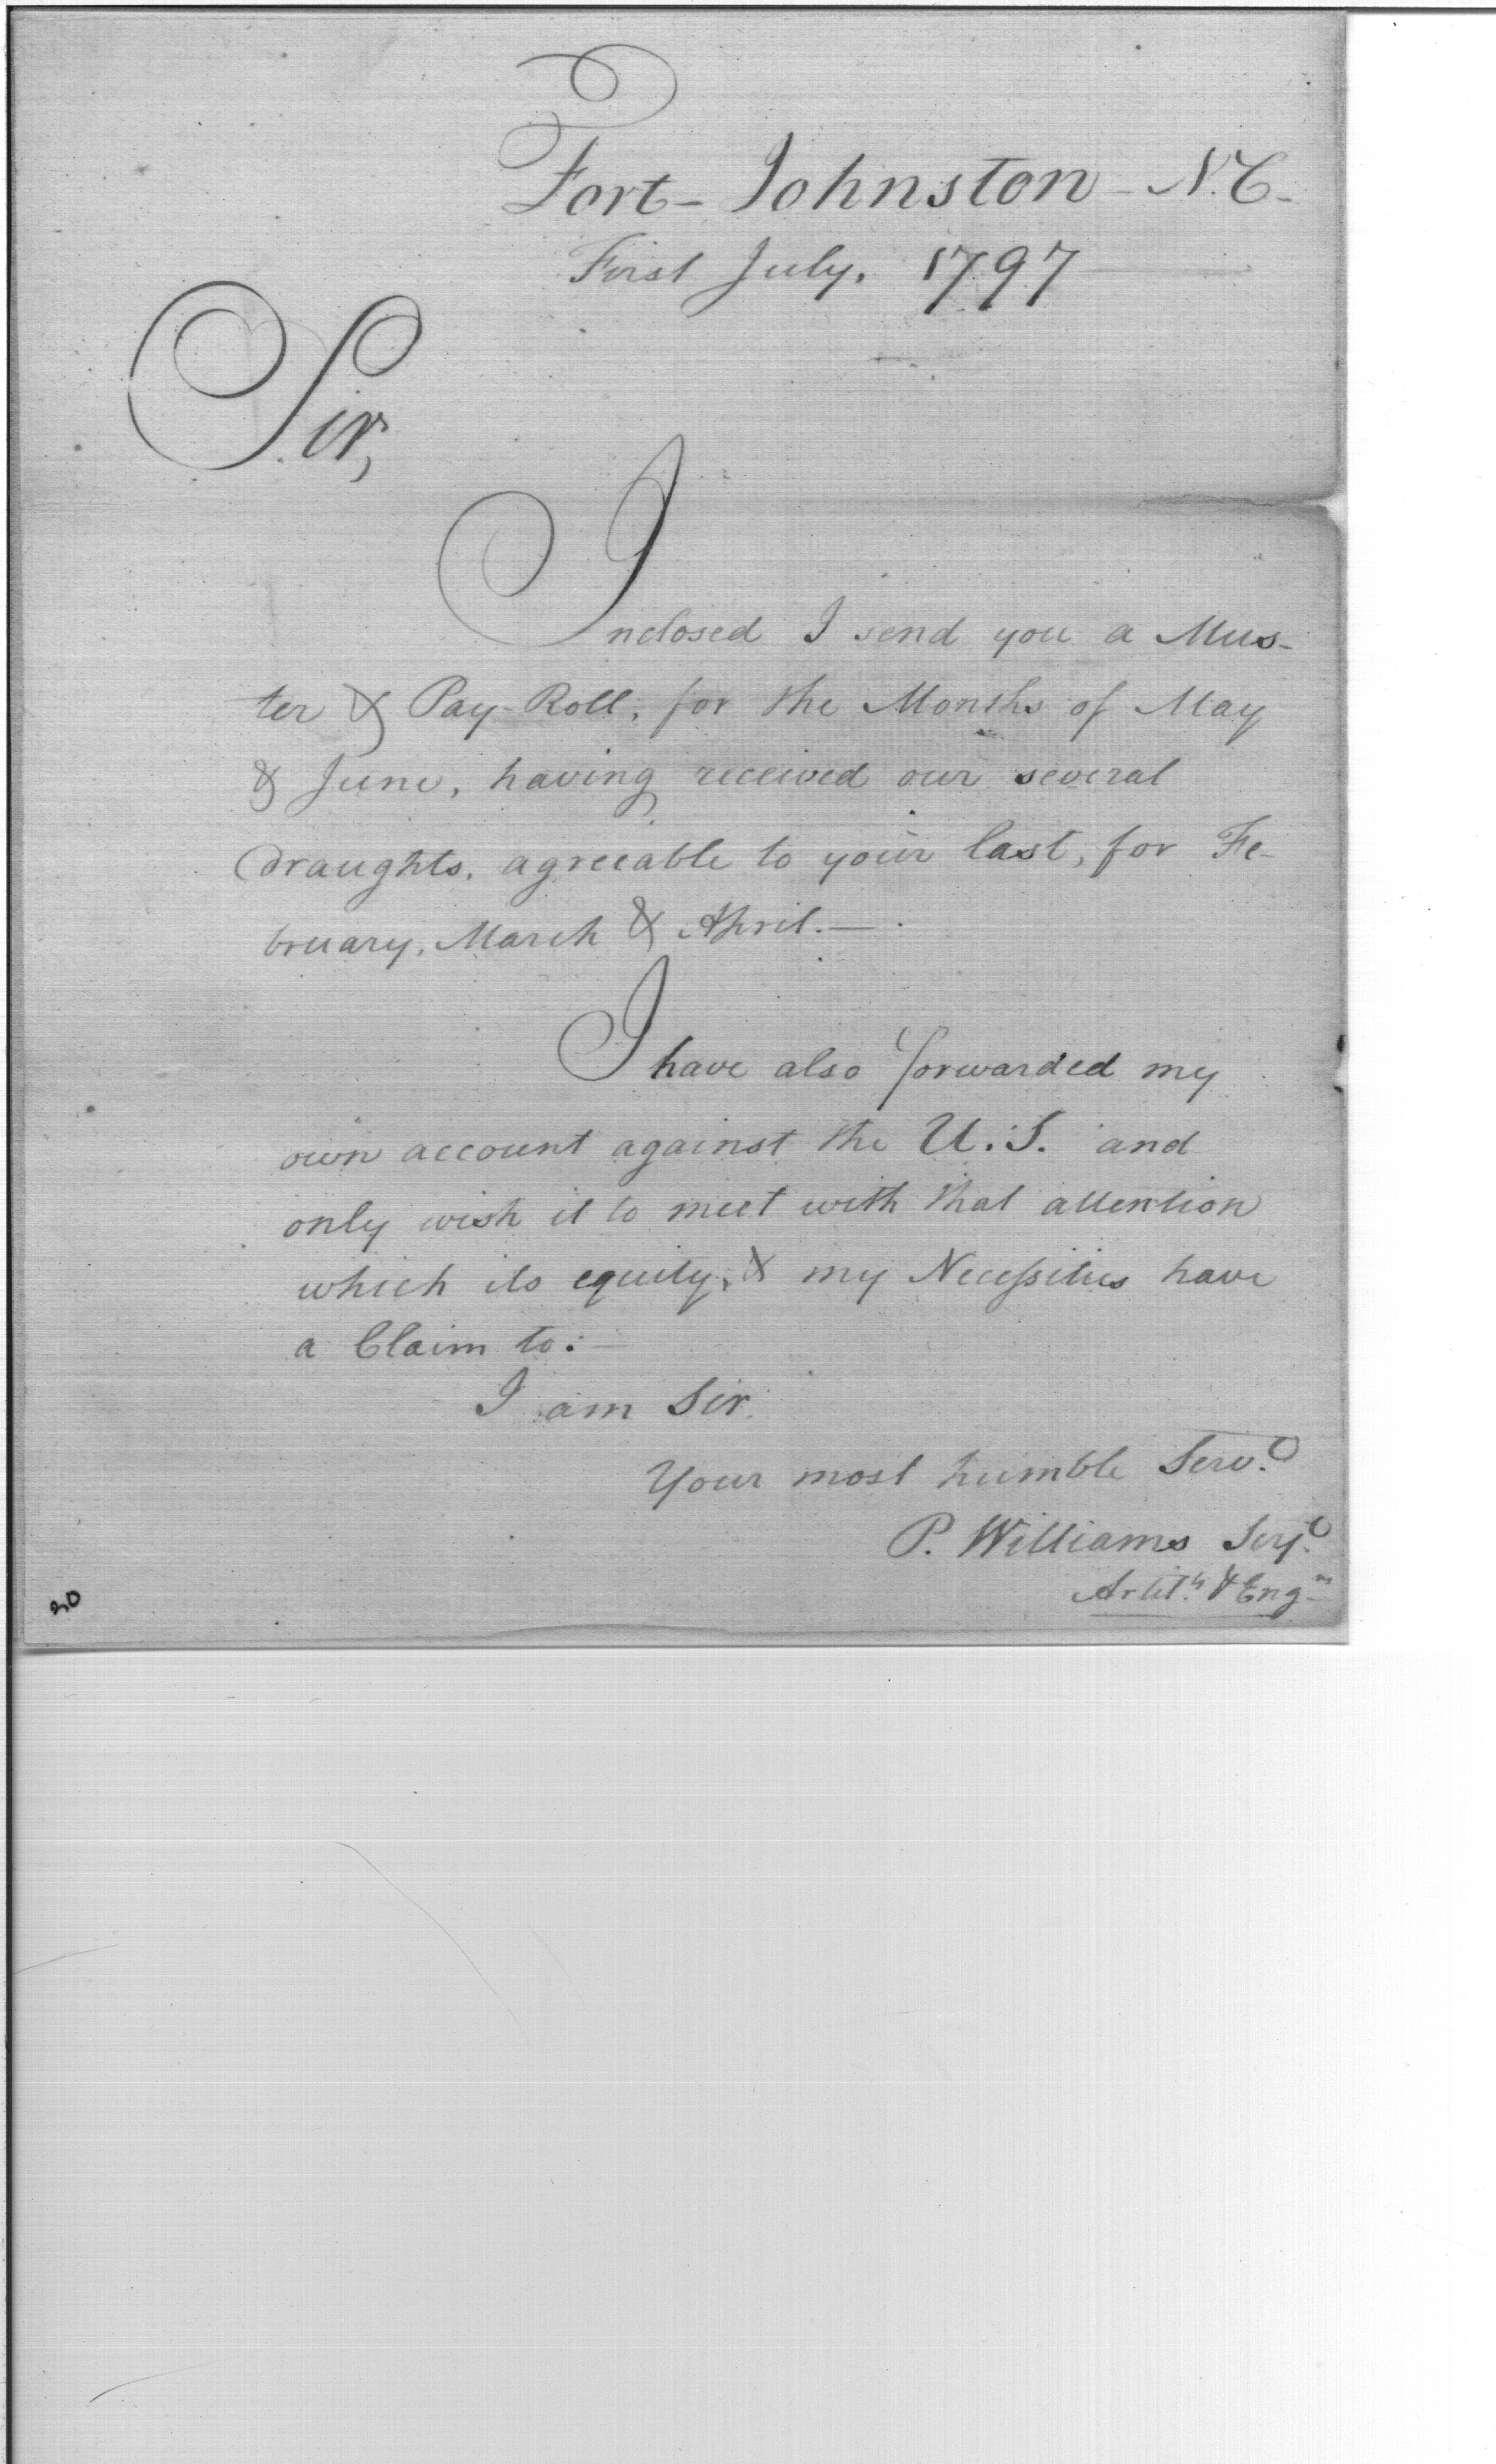 Fort-Johnston-N.C.-
First July, 1797
Sir,
Inclosed I send you a Mus-
ter & Pay-Roll, for the Months of May
& June, having received our several
draughts, agreeable to your last, for Fe-
bruary, March & April.—.
I have also forwarded my
own account against the U.S. and
only wish it to meet with that attention
which its equity, & my Necessities have
a Claim to:—
I am Sir
Your most humble Serv.t
P. Williams Serj.t
Artil.ts & Eng.rs
20